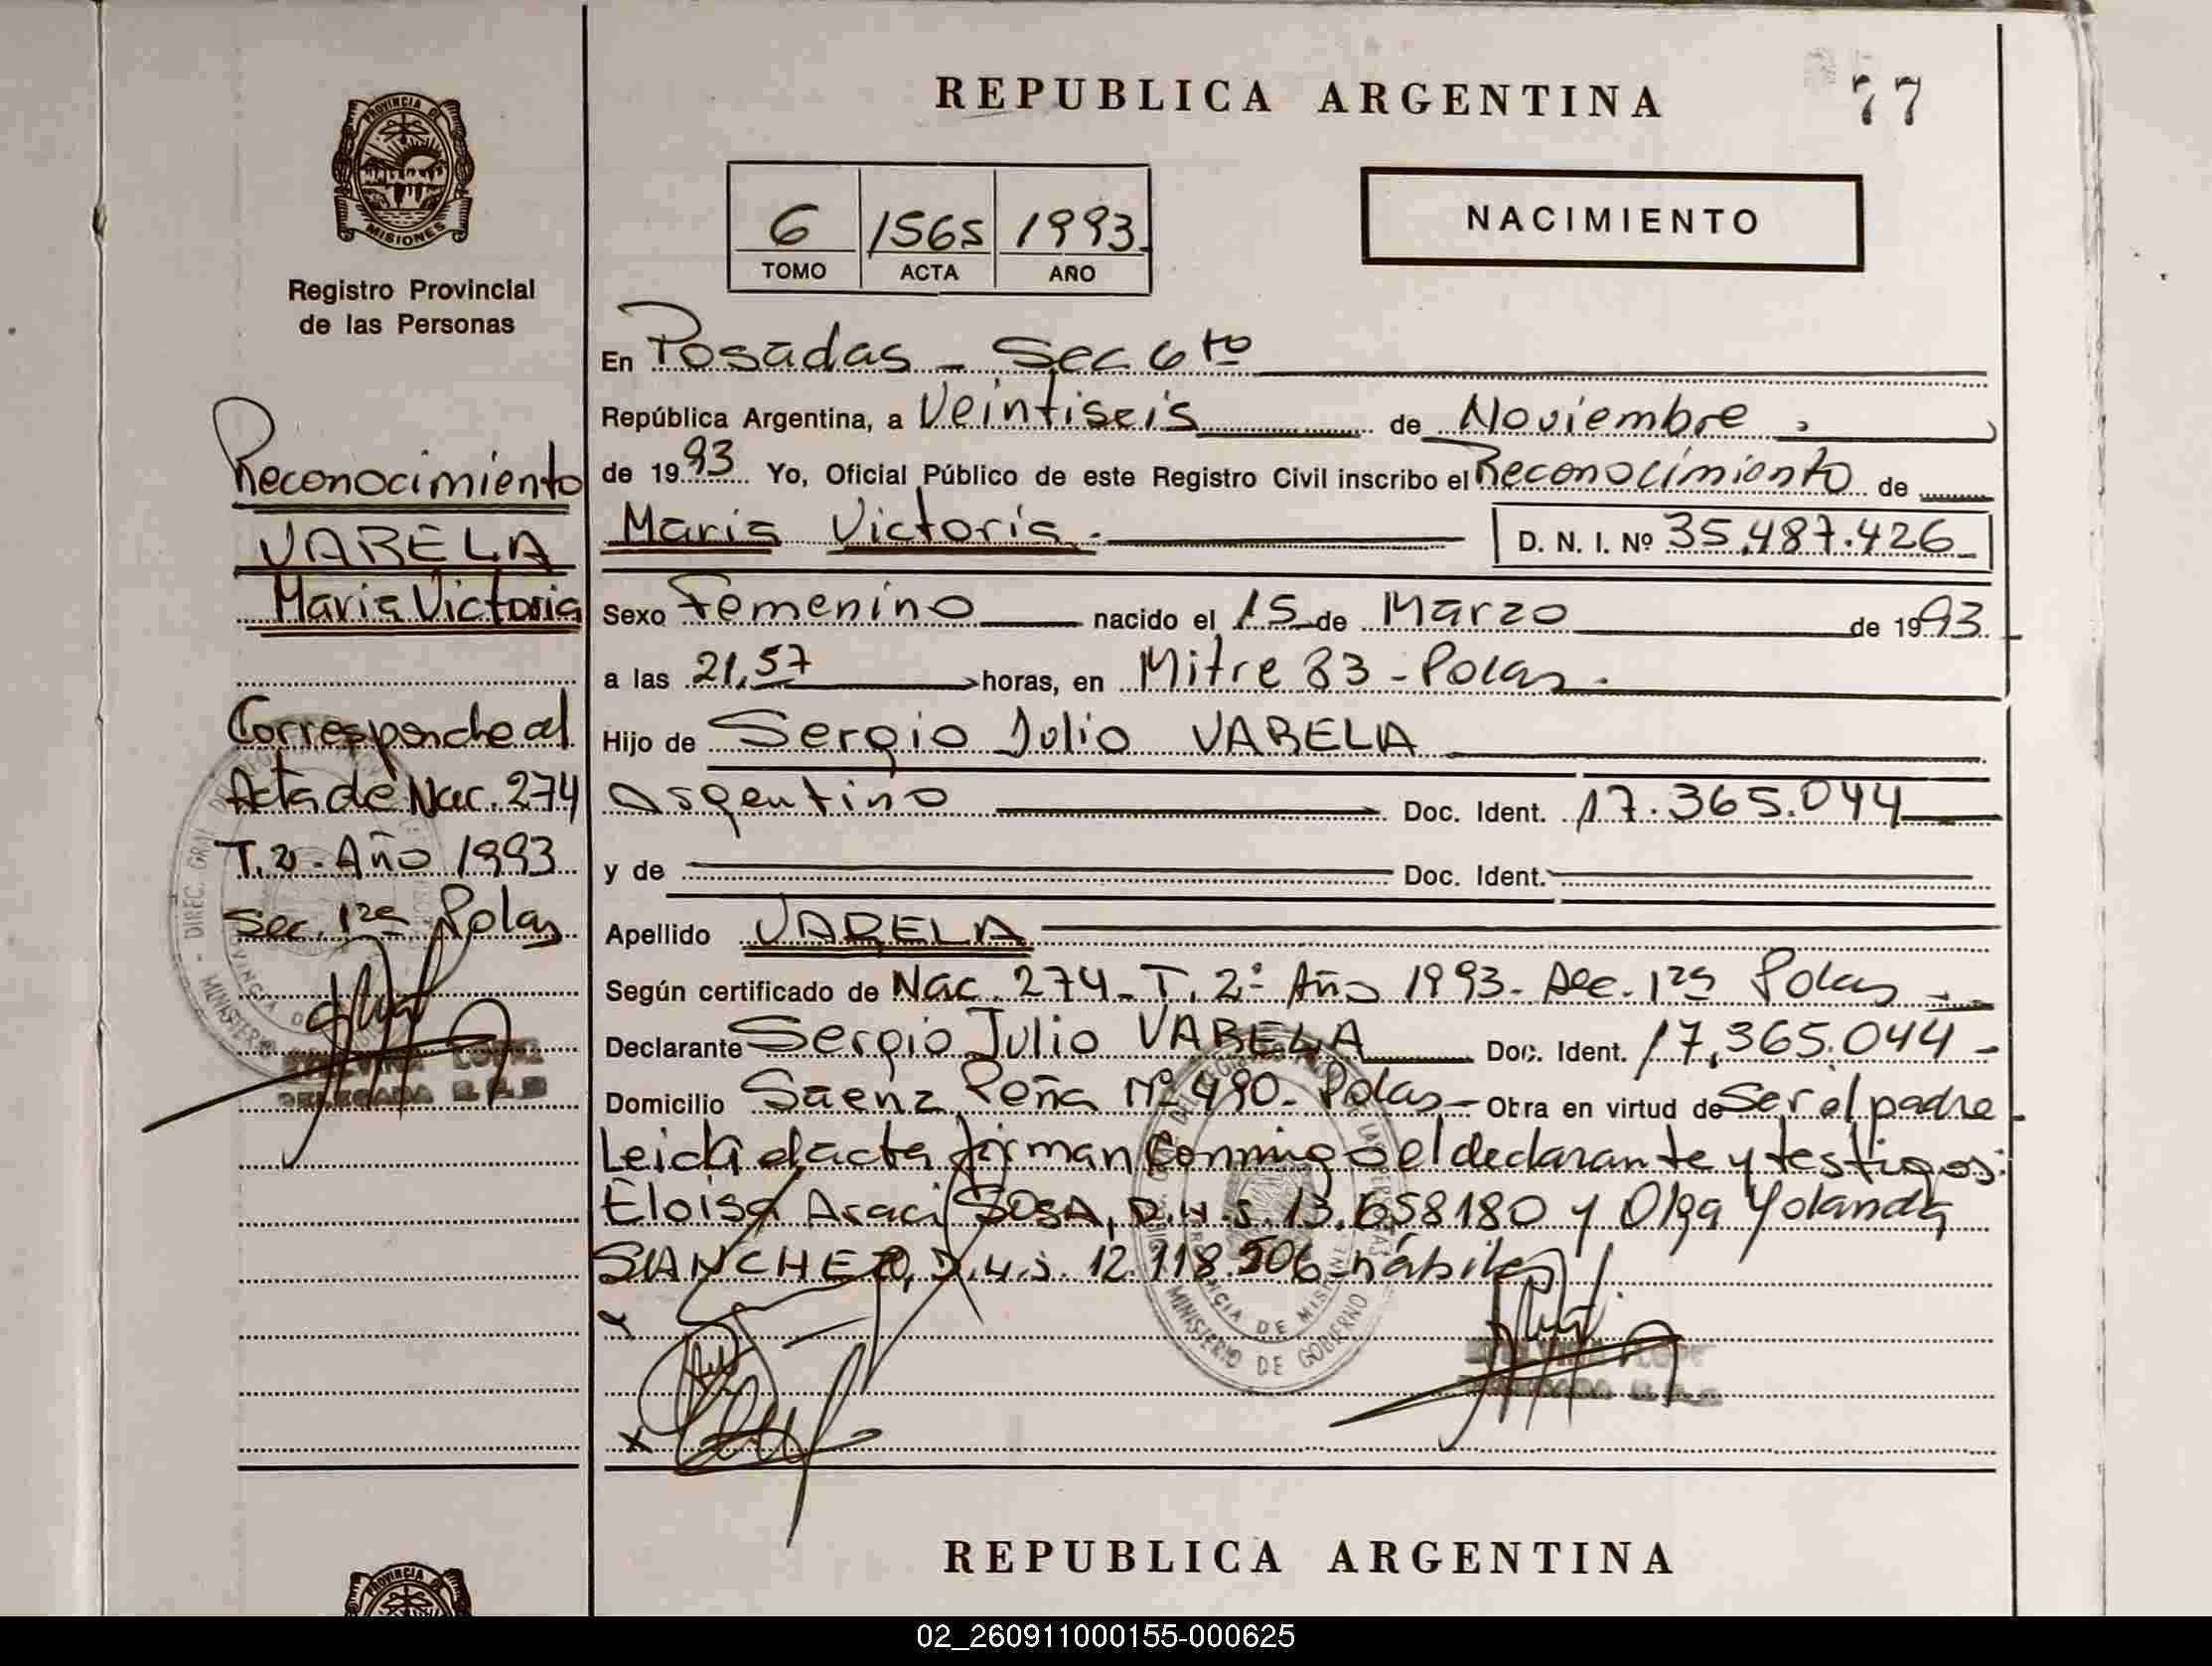 REPUBLICA ARGENTINA
77
PROVINCIA DE
MISIONES
Registro Provincial
de las Personas
6 1565 1993
TOMO ACTA AÑO
NACIMIENTO
En Posadas - Sec 6to
República Argentina, a Veintiseis de Noviembre
de 1993 Yo, Oficial Público de este Registro Civil inscribo el Reconocimiento de
Maria Victoria.- D. N. I. Nº 35.487.426
Sexo Femenino nacido el 15 de Marzo de 1993
a las 21,57 horas, en Mitre 83 - Pdas.
Hijo de Sergio Julio VARELA
argentino Doc. Ident. 17.365.044
y de Doc. Ident.
Apellido VARELA
Según certificado de Nac. 274 - T. 2º Año 1993 - Sec. 1ra Pdas
Declarante Sergio Julio VARELA Doc. Ident. 17.365.044 -
Domicilio Saenz Peña Nº 490 - Pdas - Obra en virtud de Ser el padre
Leida el acta firman conmigo el declarante y testigos:
Eloisa Araci SOSA, D.N.I. 13.658180 y Olga Yolanda
SANCHEZ, D.N.I. 12.118.506 - hábiles
Reconocimiento
VARELA
Maria Victoria
Corresponde al
Acta de Nac. 274
T. 2 - Año 1993
Sec. 1ra Pdas
MINISTERIO DE GOBIERNO
REPUBLICA ARGENTINA
PROVINCIA DE
02_260911000155-000625